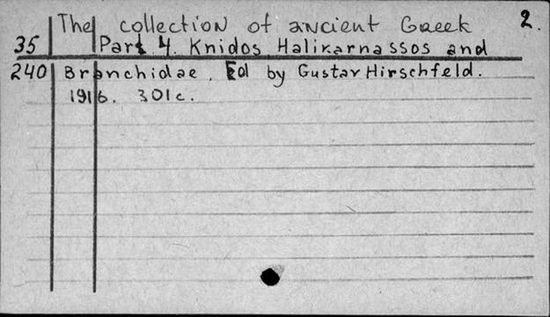 The collection of ancient Greek 2.
35 Part 4. Knidos Halikarnassos and
240 Branchidae. Ed by Gustav Hirschfeld.
1916. 301c.